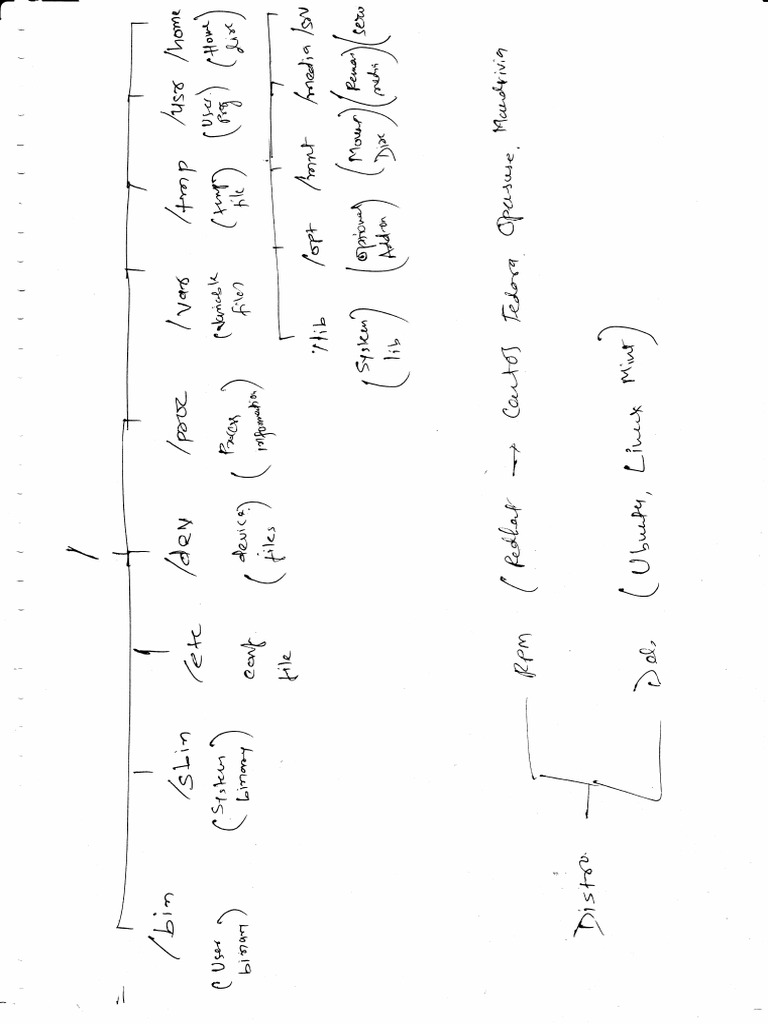 /
/bin
(User
binary)
/sbin
(System
binary)
/etc
conf
file
/dev
(device
files)
/proc
(Process
information)
/var
(variable
files)
/tmp
(temp
file)
/usr
(User
Prog)
/home
(Home
dire)
/lib
(System
lib)
/opt
(Optional
Addon)
/mnt
(Mount
Dire)
/media
media)
/srv
(serv
Distro.
RPM (Redhat → Centos Fedora Opensuse. Mandrivia
Deb. (Ubuntu, Linux Mint)